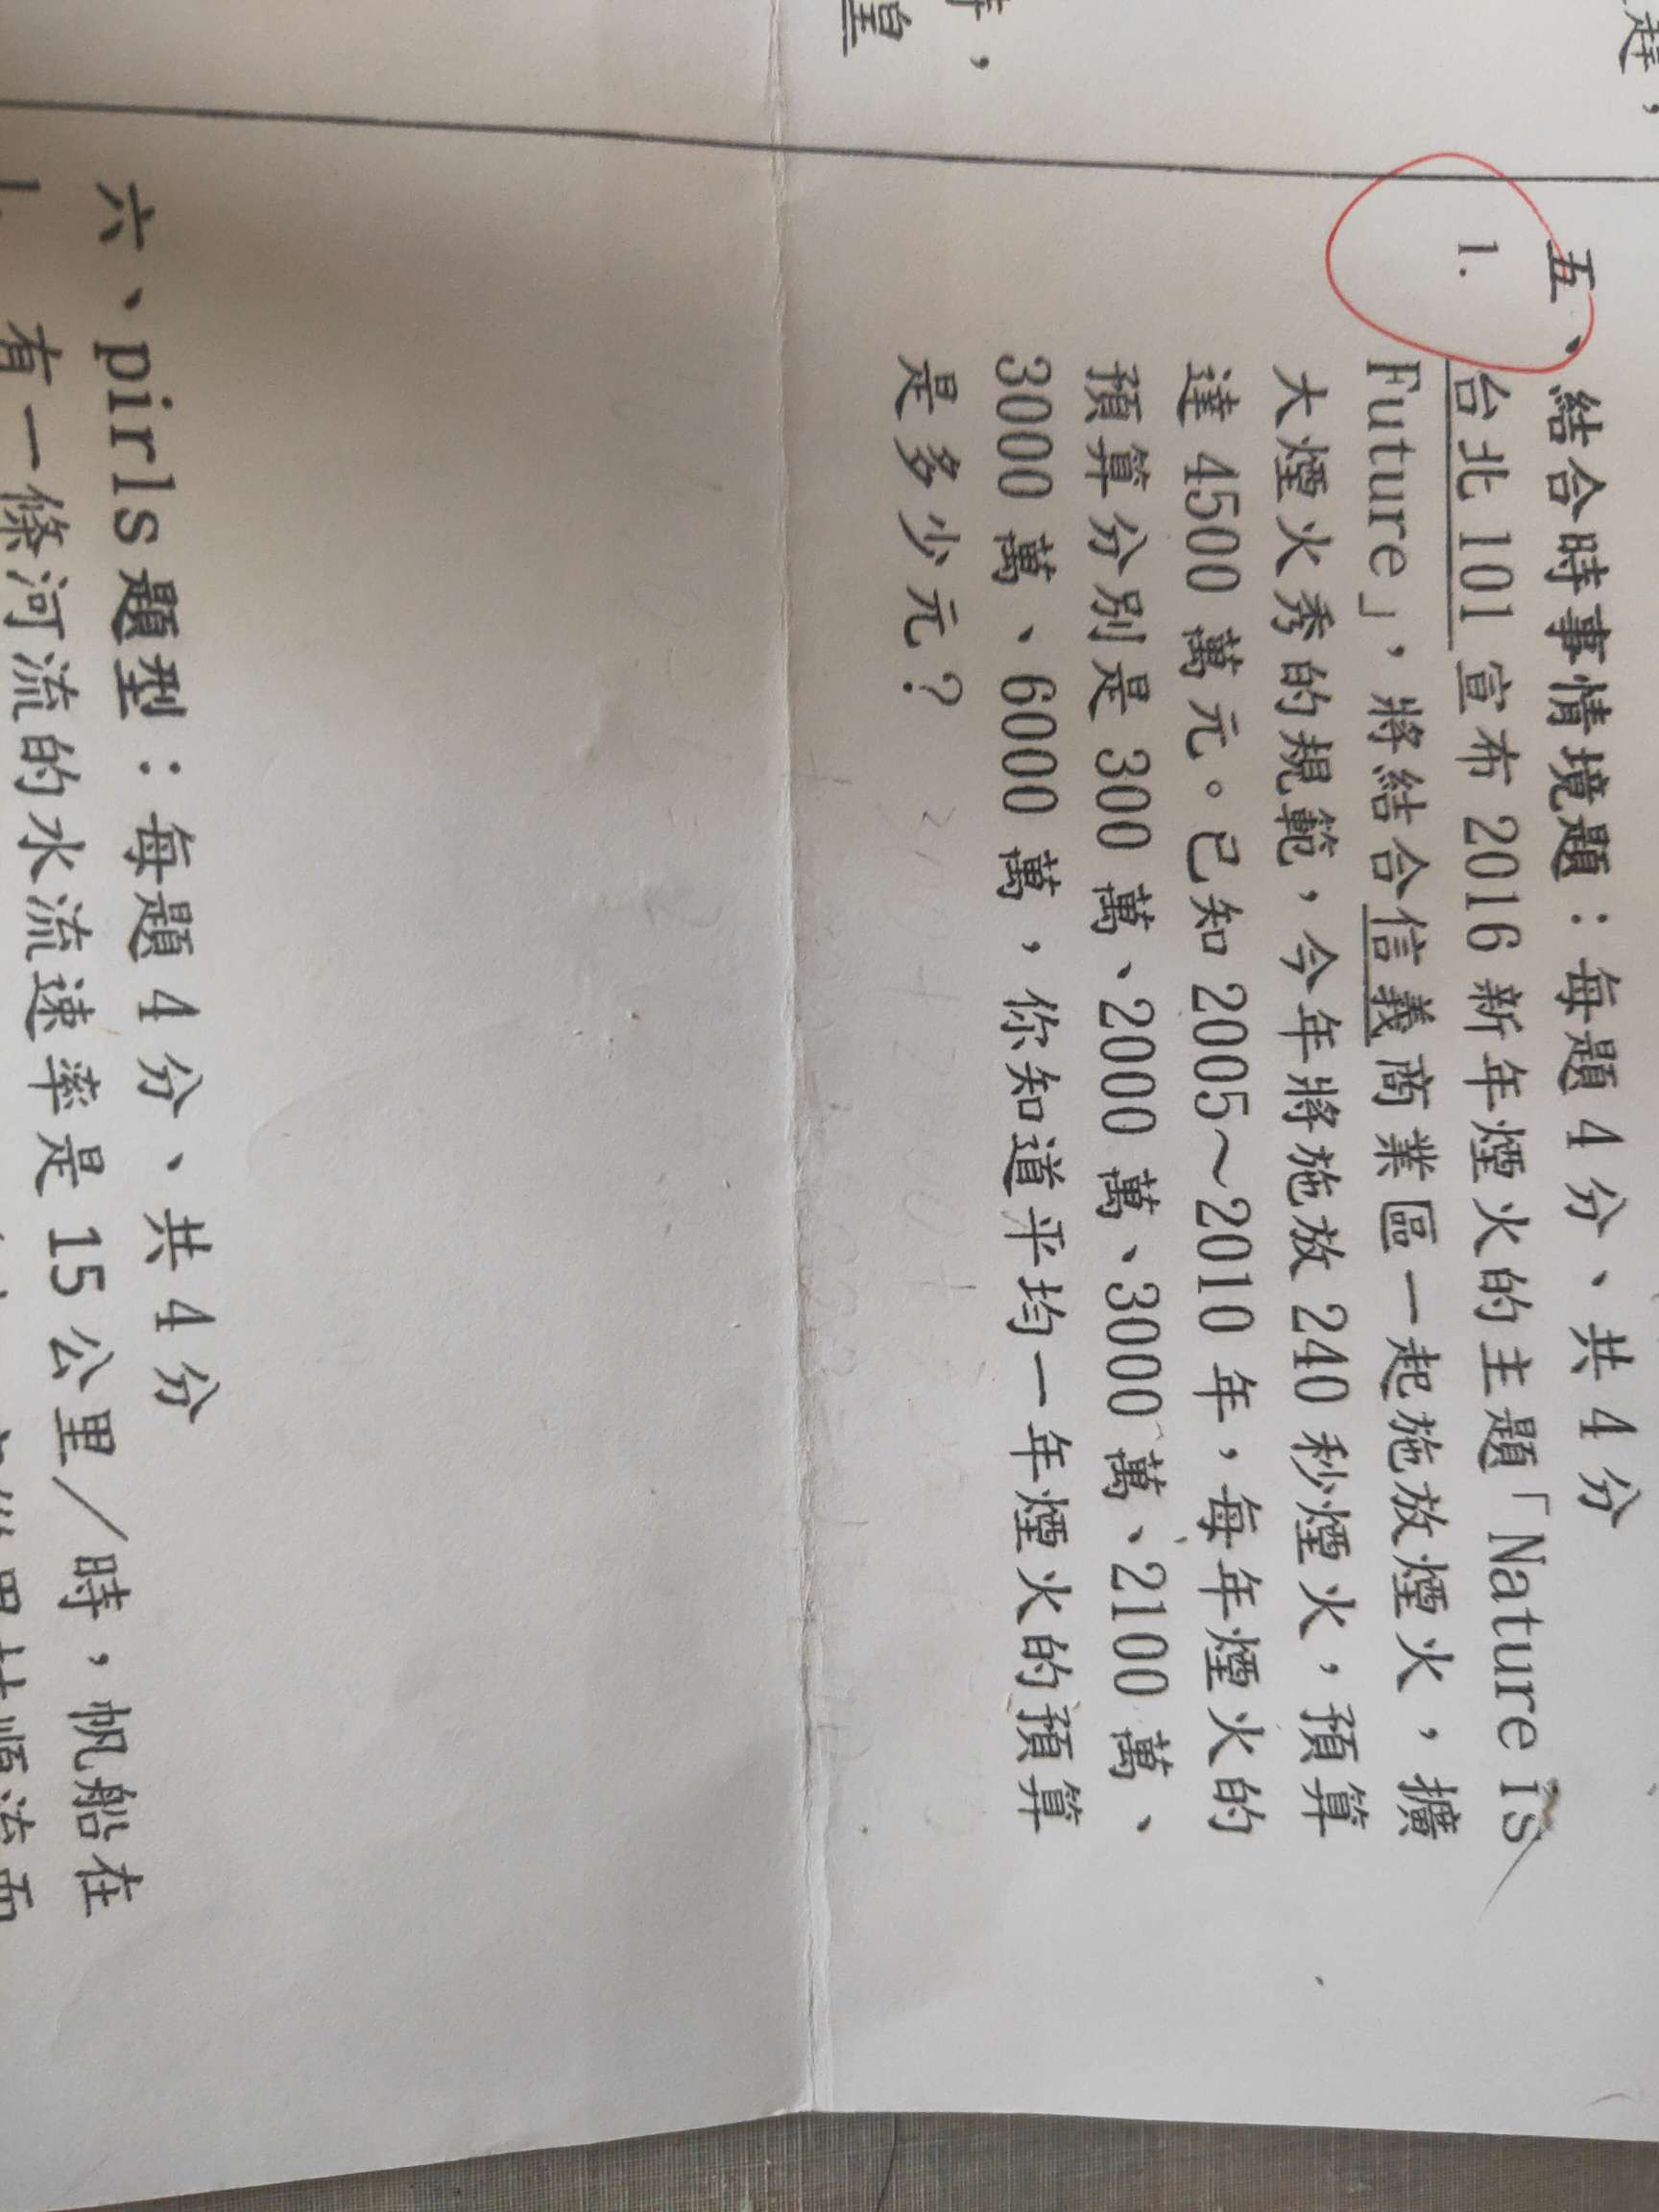 五、結合時事情境題：每題4分、共4分
1. 台北101宣布2016新年煙火的主題「Nature Is
Future」，將結合信義商業區一起施放煙火，擴
大煙火秀的規範，今年將施放240秒煙火，預算
達4500萬元。已知2005～2010年，每年煙火的
預算分別是300萬、2000萬、3000萬、2100萬、
3000萬、6000萬，你知道平均一年煙火的預算
是多少元？
六、pirls題型：每題4分、共4分
1. 有一條河流的水流速率是15公里／時，帆船在